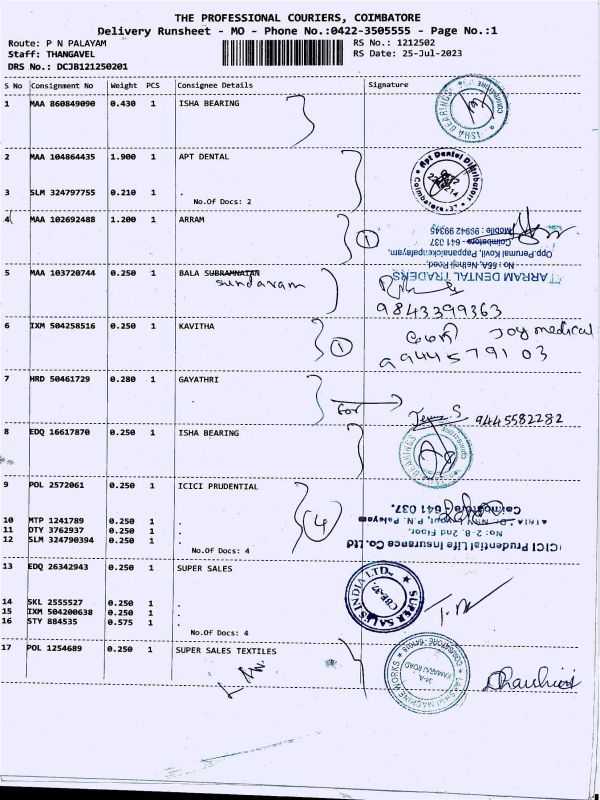 THE PROFESSIONAL COURIERS, COIMBATORE
Delivery Runsheet - MO - Phone No.:0422-3505555 - Page No.:1
Route: P N PALAYAM
RS No.: 1212502
Staff: THANGAVEL
RS Date: 25-Jul-2023
DRS No.: DCJB121250201
S No Consignment No Weight PCS Consignee Details Signature
1 MAA 860849090 0.430 1 ISHA BEARING
ISHA BEARINGS
COIMBATORE
2 MAA 104864435 1.900 1 APT DENTAL
Apt Dental Distributors
Coimbatore-37
3 SLM 324797755 0.210 1 .
No.Of Docs: 2
4 MAA 102692488 1.200 1 ARRAM
1
ARRAM DENTAL TRADERS
No: 66A, Nethaji Road,
Opp.Perumal Kovil, Pappanaickenpalayam,
Coimbatore - 641 037
Mobile : 99942 99345
5 MAA 103720744 0.250 1 BALA SUBRAMNAIAN
sundaram
9843399363
6 IXM 504258516 0.250 1 KAVITHA
1
Joy medical
9944579103
7 HRD 50461729 0.280 1 GAYATHRI
for
9445582282
8 EDQ 16617870 0.250 1 ISHA BEARING
ISHA BEARINGS
COIMBATORE
9 POL 2572061 0.250 1 ICICI PRUDENTIAL
4
ICICI Prudential Life Insurance Co. Ltd
No: 2-8, 2nd Floor,
Layout, P.N. Palayam
Coimbatore 641 037.
10 MTP 1241789 0.250 1 .
11 DTY 3762937 0.250 1 .
12 SLM 324790394 0.250 1 .
No.Of Docs: 4
13 EDQ 26342943 0.250 1 SUPER SALES
SUPER SALES INDIA LTD.
CBE-37.
14 SKL 2555527 0.250 1 .
15 IXM 504200638 0.250 1 .
16 STY 884535 0.575 1 .
No.Of Docs: 4
17 POL 1254689 0.250 1 SUPER SALES TEXTILES
LAKSHMI MACHINE WORKS
34-A,
KAMARAJ ROAD